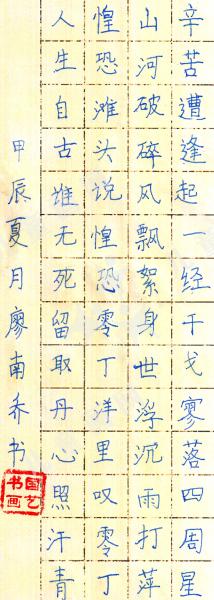 辛苦遭逢起一经干戈寥落四周星
山河破碎风飘絮身世浮沉雨打萍
惶恐滩头说惶恐零丁洋里叹零丁
人生自古谁无死留取丹心照汗青
甲辰夏月廖南乔书
国艺
书画